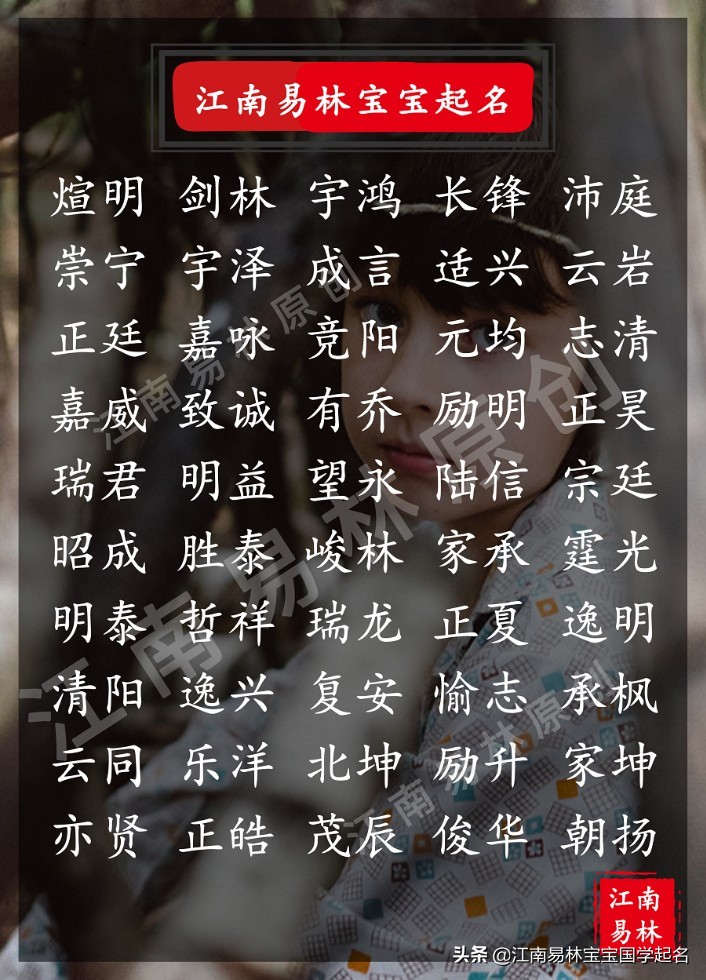 江南易林宝宝起名
煊明 剑林 宇鸿 长锋 沛庭
崇宁 宇泽 成言 适兴 云岩
正廷 嘉咏 竞阳 元均 志清
嘉威 致诚 有乔 励明 正昊
瑞君 明益 望永 陆信 宗廷
昭成 胜泰 峻林 家承 霆光
明泰 哲祥 瑞龙 正夏 逸明
清阳 逸兴 复安 愉志 承枫
云同 乐洋 北坤 励升 家坤
亦贤 正皓 茂辰 俊华 朝扬
江南易林原创
江南易林原创
江南易林原创
江南
易林
头条 @江南易林宝宝国学起名